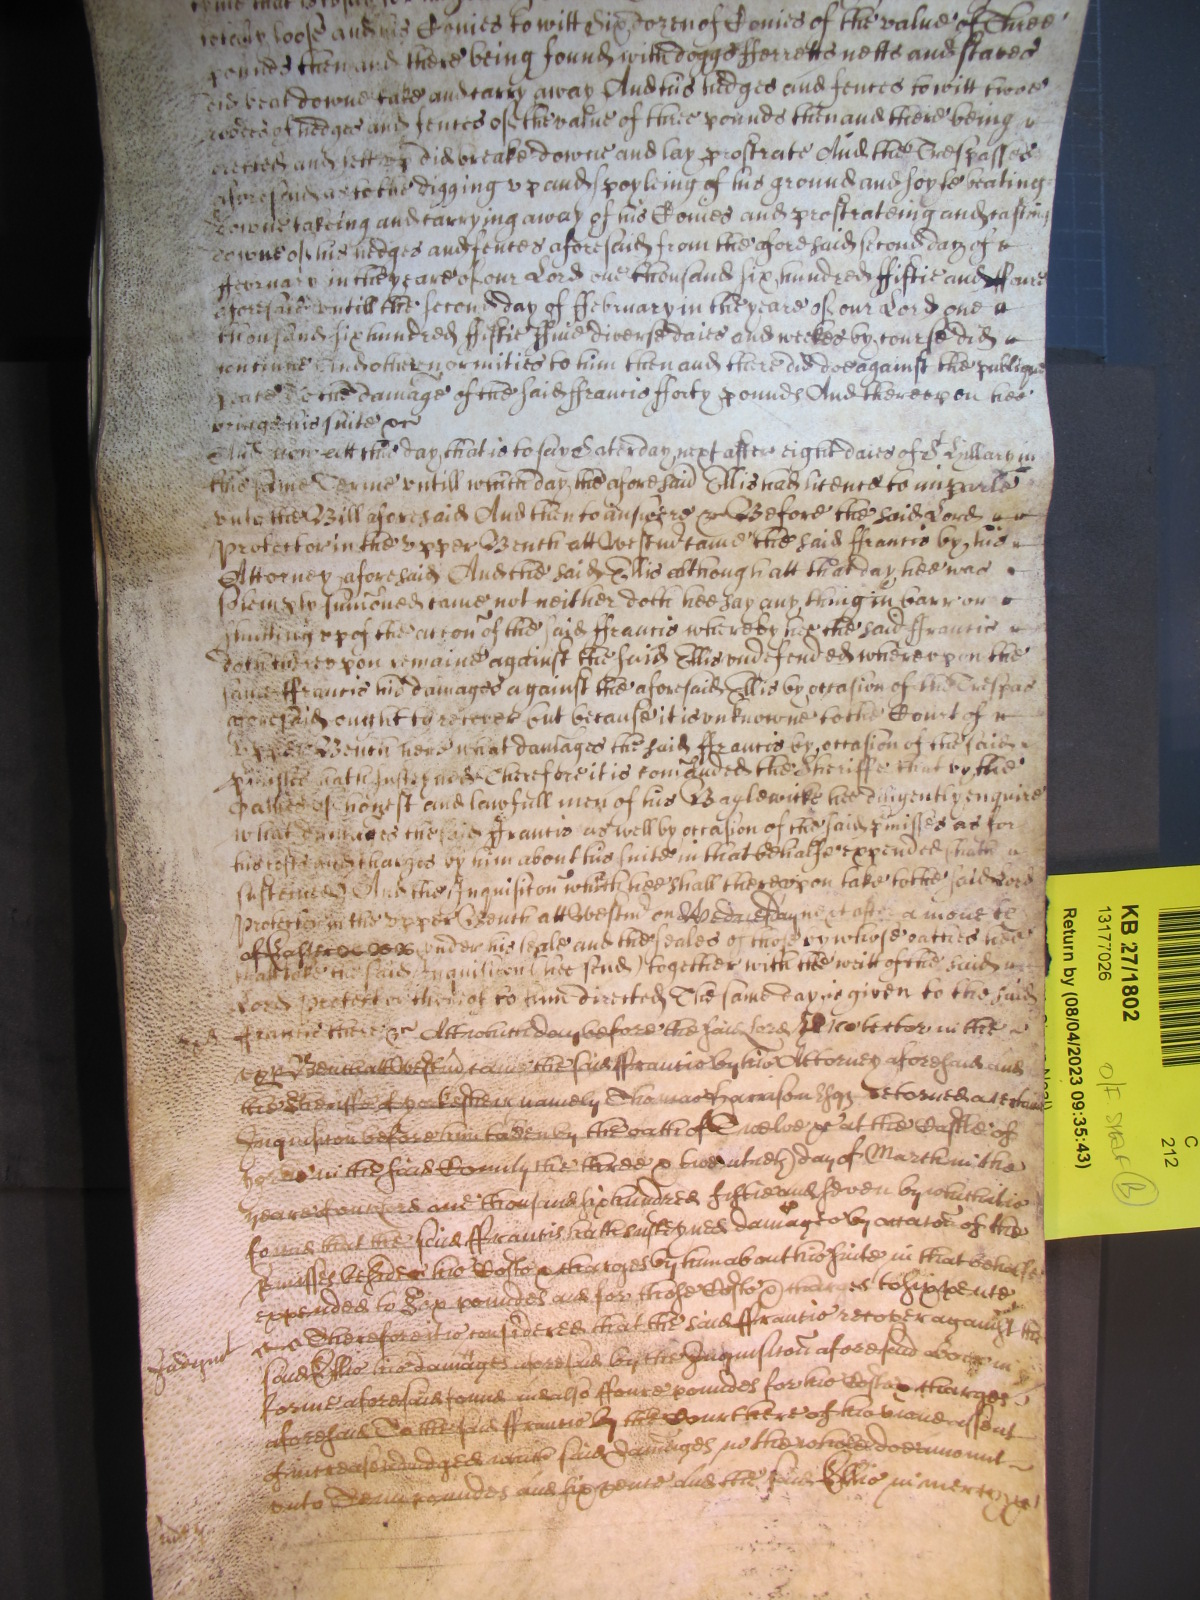 loose and his Conies to witt Six dozen of Conies of the value of Three
pounds then and there being found with doggs fferretts netts and staves
did beat downe take and carry away And his hedges and fences to witt twoe
rodes of hedges and fences of the value of three pounds then and there being
erected and sett up did breake downe and lay prostrate And the Trespasses
aforesaid as to the digging up and spoyleing of his ground and soyle beating
downe takeing and carrying away of his Conies and prostrateing and casting
downe of his hedges and fences aforesaid from the aforesaid second day of
ffebruary in the yeare of our Lord one thousand six hundred fiftie and ffoure
aforesaid untill the second day of ffebruary in the yeare of our Lord one
thousand six hundred fiftie ffive diverse daies and weekes by course did
continue And other enormities to him then and there did doe against the publique
peace To the damage of the said ffrancis fforty pounds And thereupon hee
brings his suite &c
And now att this day that is to say Saterday next after eight daies of St Hillary in
this same Terme untill which day the aforesaid Ellis had licence to imparle
unto the Bill aforesaid And then to answere &c Before the said Lord
Protector in the upper Bench att Westmr came the said ffrancis by his
Attorney aforesaid And the said Ellis although att that day hee was
solemply sumoned came not neither doth hee say any thing in barr or
of the accon of the said ffrancis whereby hee the said ffrancis
doth thereupon remaine against the said Ellis undefended whereupon the
same ffrancis his damages against the aforesaid Ellis by occasion of the Trespas
aforesaid ought to recover but because it is unknowne to the Court of
upper Bench here what damages the said ffrancis by occasion of the said
pmisses hath susteyned Therefore it is comanded the Sheriffe that by the
oathes of honest and lawfull men of his Baylewicke hee diligently enquire
what damages the said ffrancis as well by occasion of the said pmisses as for
his costs and charges by him about his suite in that behalfe expended hath
susteined And the Inquisicon which hee shall thereupon take to the said Lord
Protector in the upper Bench att Westmr on Wednesday next after a moneth
of Easter under his seale and the seales of those by whose oathes hee
shall take the said Inquisicon (hee send) together with the writt of the said
Lord Protector thereof to him directed The same day is given to the said
ffrancis there &c Att which day before the said Lord Protector in the
upp Bench att Westmr came the said ffrancis by his Attorney aforesaid and
the Sheriffe of Yorkeshire namely Thomas Harrison Esqr retorned a certaine
Inquisicon before him taken by the oath of Twelve &c at the Castle of
Yorke in the said County the three & twentieth day of March in the
yeare of our Lord one thousand six hundred fiftie and seven by which it is
found that the said ffrancis hath susteyned damages by occacon of the
pmisses besides his Costs & charges by him about his suite in that behalfe
expended to Six pounds and for those Costs & charges to sixpence
Therefore it is considered that the said ffrancis recover against the
Judgmt said Ellis his damages aforesaid by the Inquisicon aforesaid above in
forme aforesaid found and also ffoure pounds for his Costs & charges
aforesaid To the said ffrancis by the Court here of his owne assent
of increase adjudged which said damages in the whole doe amount
unto Tenn pounds and sixpence And the said Ellis in mercy &c
KB 27/1802
13177026
Return by (08/04/2023 09:35:43)
C
212